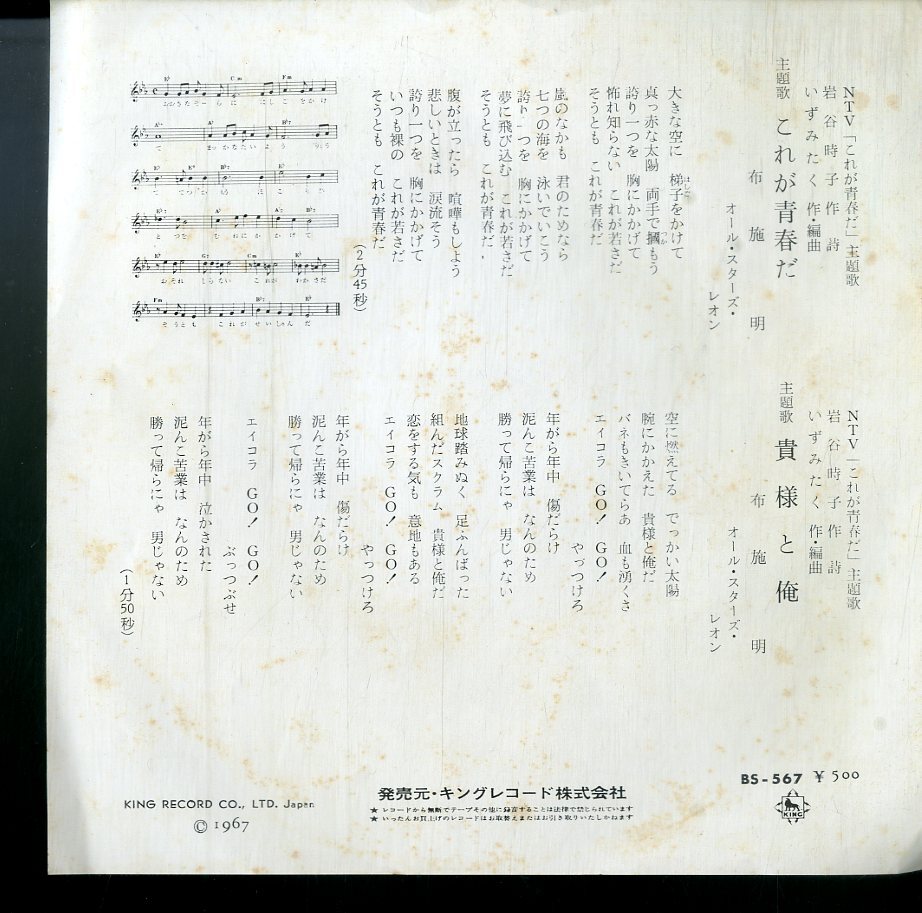 NTV「これが青春だ」主題歌
岩谷時子 作詩
いずみたく 作・編曲
主題歌 これが青春だ
布施明
オール・スターズ・
レオン
大きな空に 梯子をかけて
はしご
真っ赤な太陽 両手で摑もう
つか
誇り一つを 胸にかかげて
怖れ知らない これが若さだ
そうとも これが青春だ
嵐のなかも 君のためなら
七つの海を 泳いでいこう
誇り一つを 胸にかかげて
夢に飛び込む これが若さだ
そうとも これが青春だ
腹が立ったら 喧嘩もしよう
悲しいときは 涙流そう
誇り一つを 胸にかかげて
いつも裸の これが若さだ
そうとも これが青春だ
(2分45秒)
E♭ Cm Fm
おおきなそーらに はしごをかけ
て まっかなたいよう りょう
とつを むねにかかげて
おそれ しらない これが わかさだ
Fm B♭7 E♭
そうとも これが せいしゅんだ
NTV「これが青春だ」主題歌
岩谷時子 作詩
いずみたく 作・編曲
主題歌 貴様と俺
布施明
オール・スターズ・
レオン
空に燃えてる でっかい太陽
腕にかかえた 貴様と俺だ
バネもきいてらあ 血も湧くさ
エイコラ GO! GO!
やっつけろ
年がら年中 傷だらけ
泥んこ苦業は なんのため
勝って帰らにゃ 男じゃない
地球踏みぬく 足ふんばった
組んだスクラム 貴様と俺だ
恋をする気も 意地もある
エイコラ GO! GO!
やっつけろ
年がら年中 傷だらけ
泥んこ苦業は なんのため
勝って帰らにゃ 男じゃない
エイコラ GO! GO!
ぶっつぶせ
年がら年中 泣かされた
泥んこ苦業は なんのため
勝って帰らにゃ 男じゃない
(1分50秒)
BS-567 ¥500
KING
発売元・キングレコード株式会社
★レコードから無断でテープその他に録音することは法律で禁じられています
★いったんお買上げのレコードはお取替えまたはお引き取りいたしかねます
KING RECORD CO., LTD. Japan
© 1967